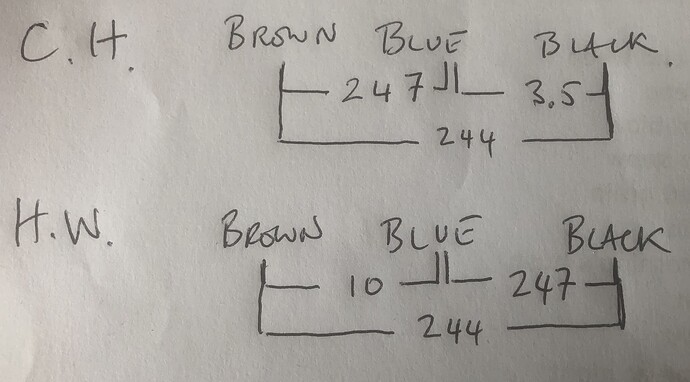 C.H. BROWN BLUE BLACK.
247 3.5
244
H.W. BROWN BLUE BLACK
10 247
244